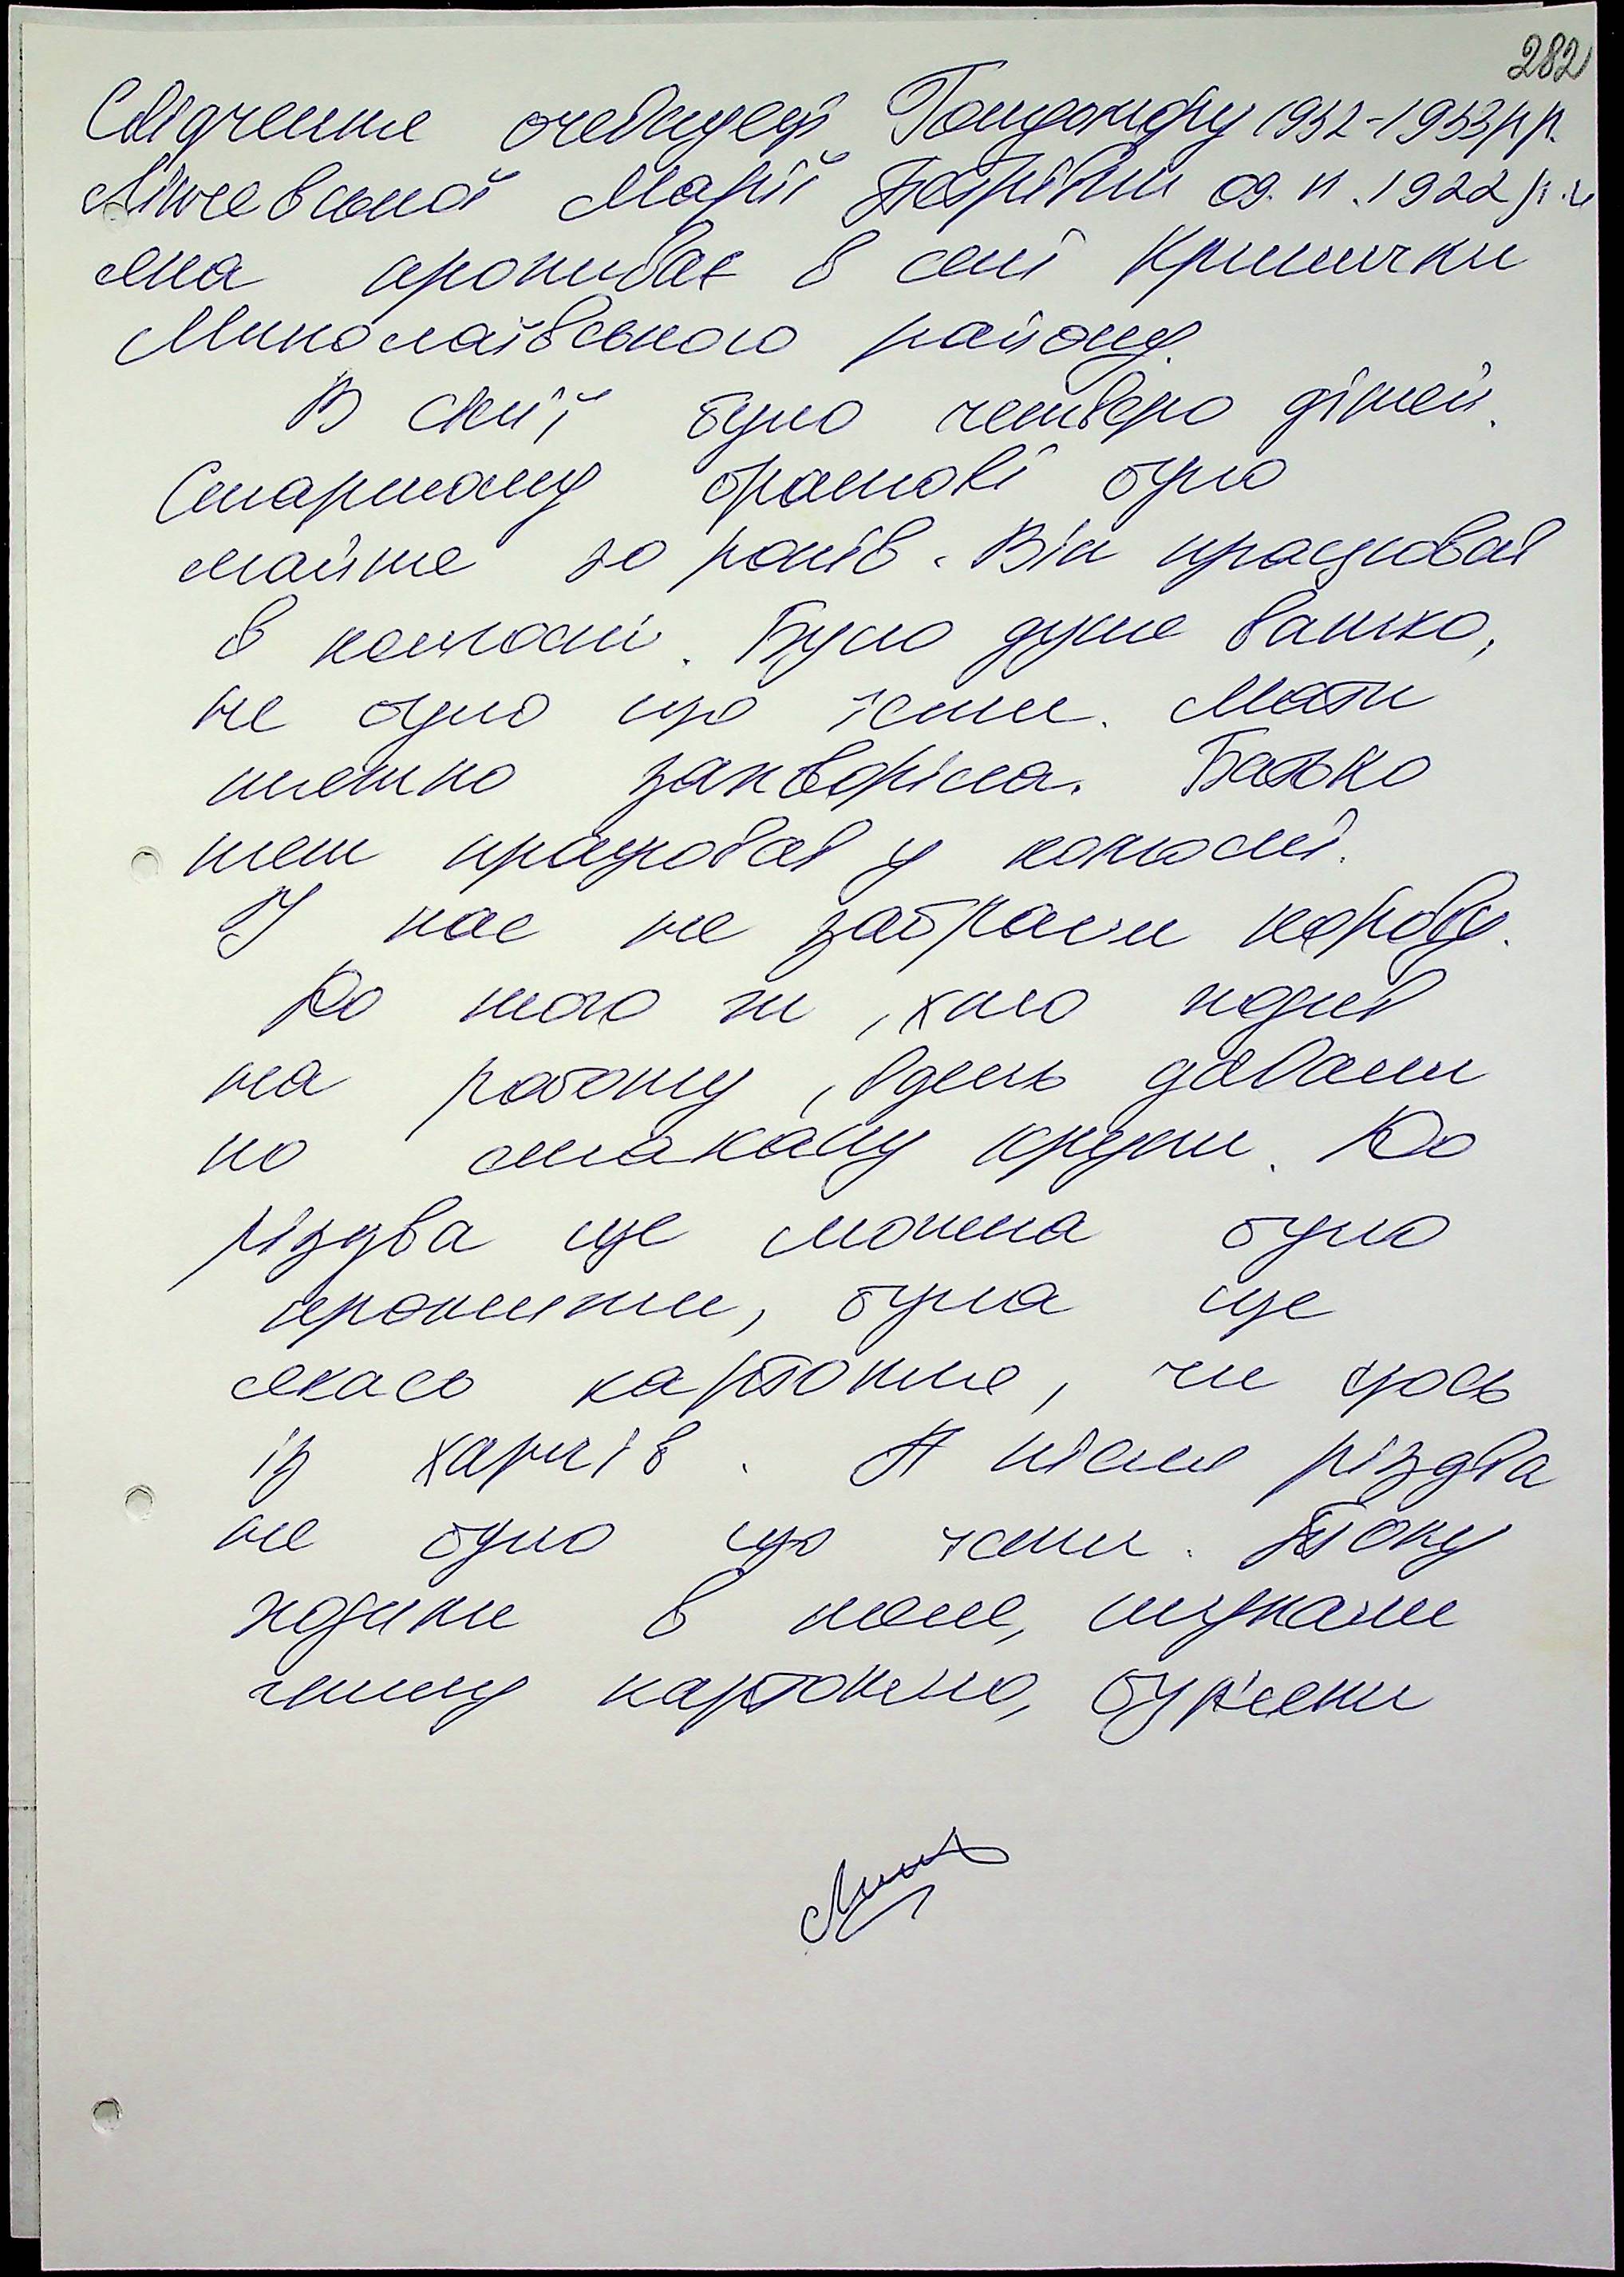 282
Свідчення очевидця Голодомору 1932-1933 рр.
Марії Петрівни 09. 11. 1922 р.н
яка проживає в селі Кринички
Миколаївського району.
В сім'ї було четверо дітей.
Старшому братові було
майже 20 років. Він працював
в колгоспі. Було дуже важко,
не було що їсти. Мати
тяжко захворіла. Батько
теж працював у колгоспі.
У нас не забрали корову.
До того ж, хто ходив
на роботу, вдень давали
по стакану крупи. До
різдва ще можна було
прожити, була ще
якась картопля, чи щось
із харчів. А після різдва
не було що їсти.
ходили в поле, шукали
гнилу картоплю, буряки